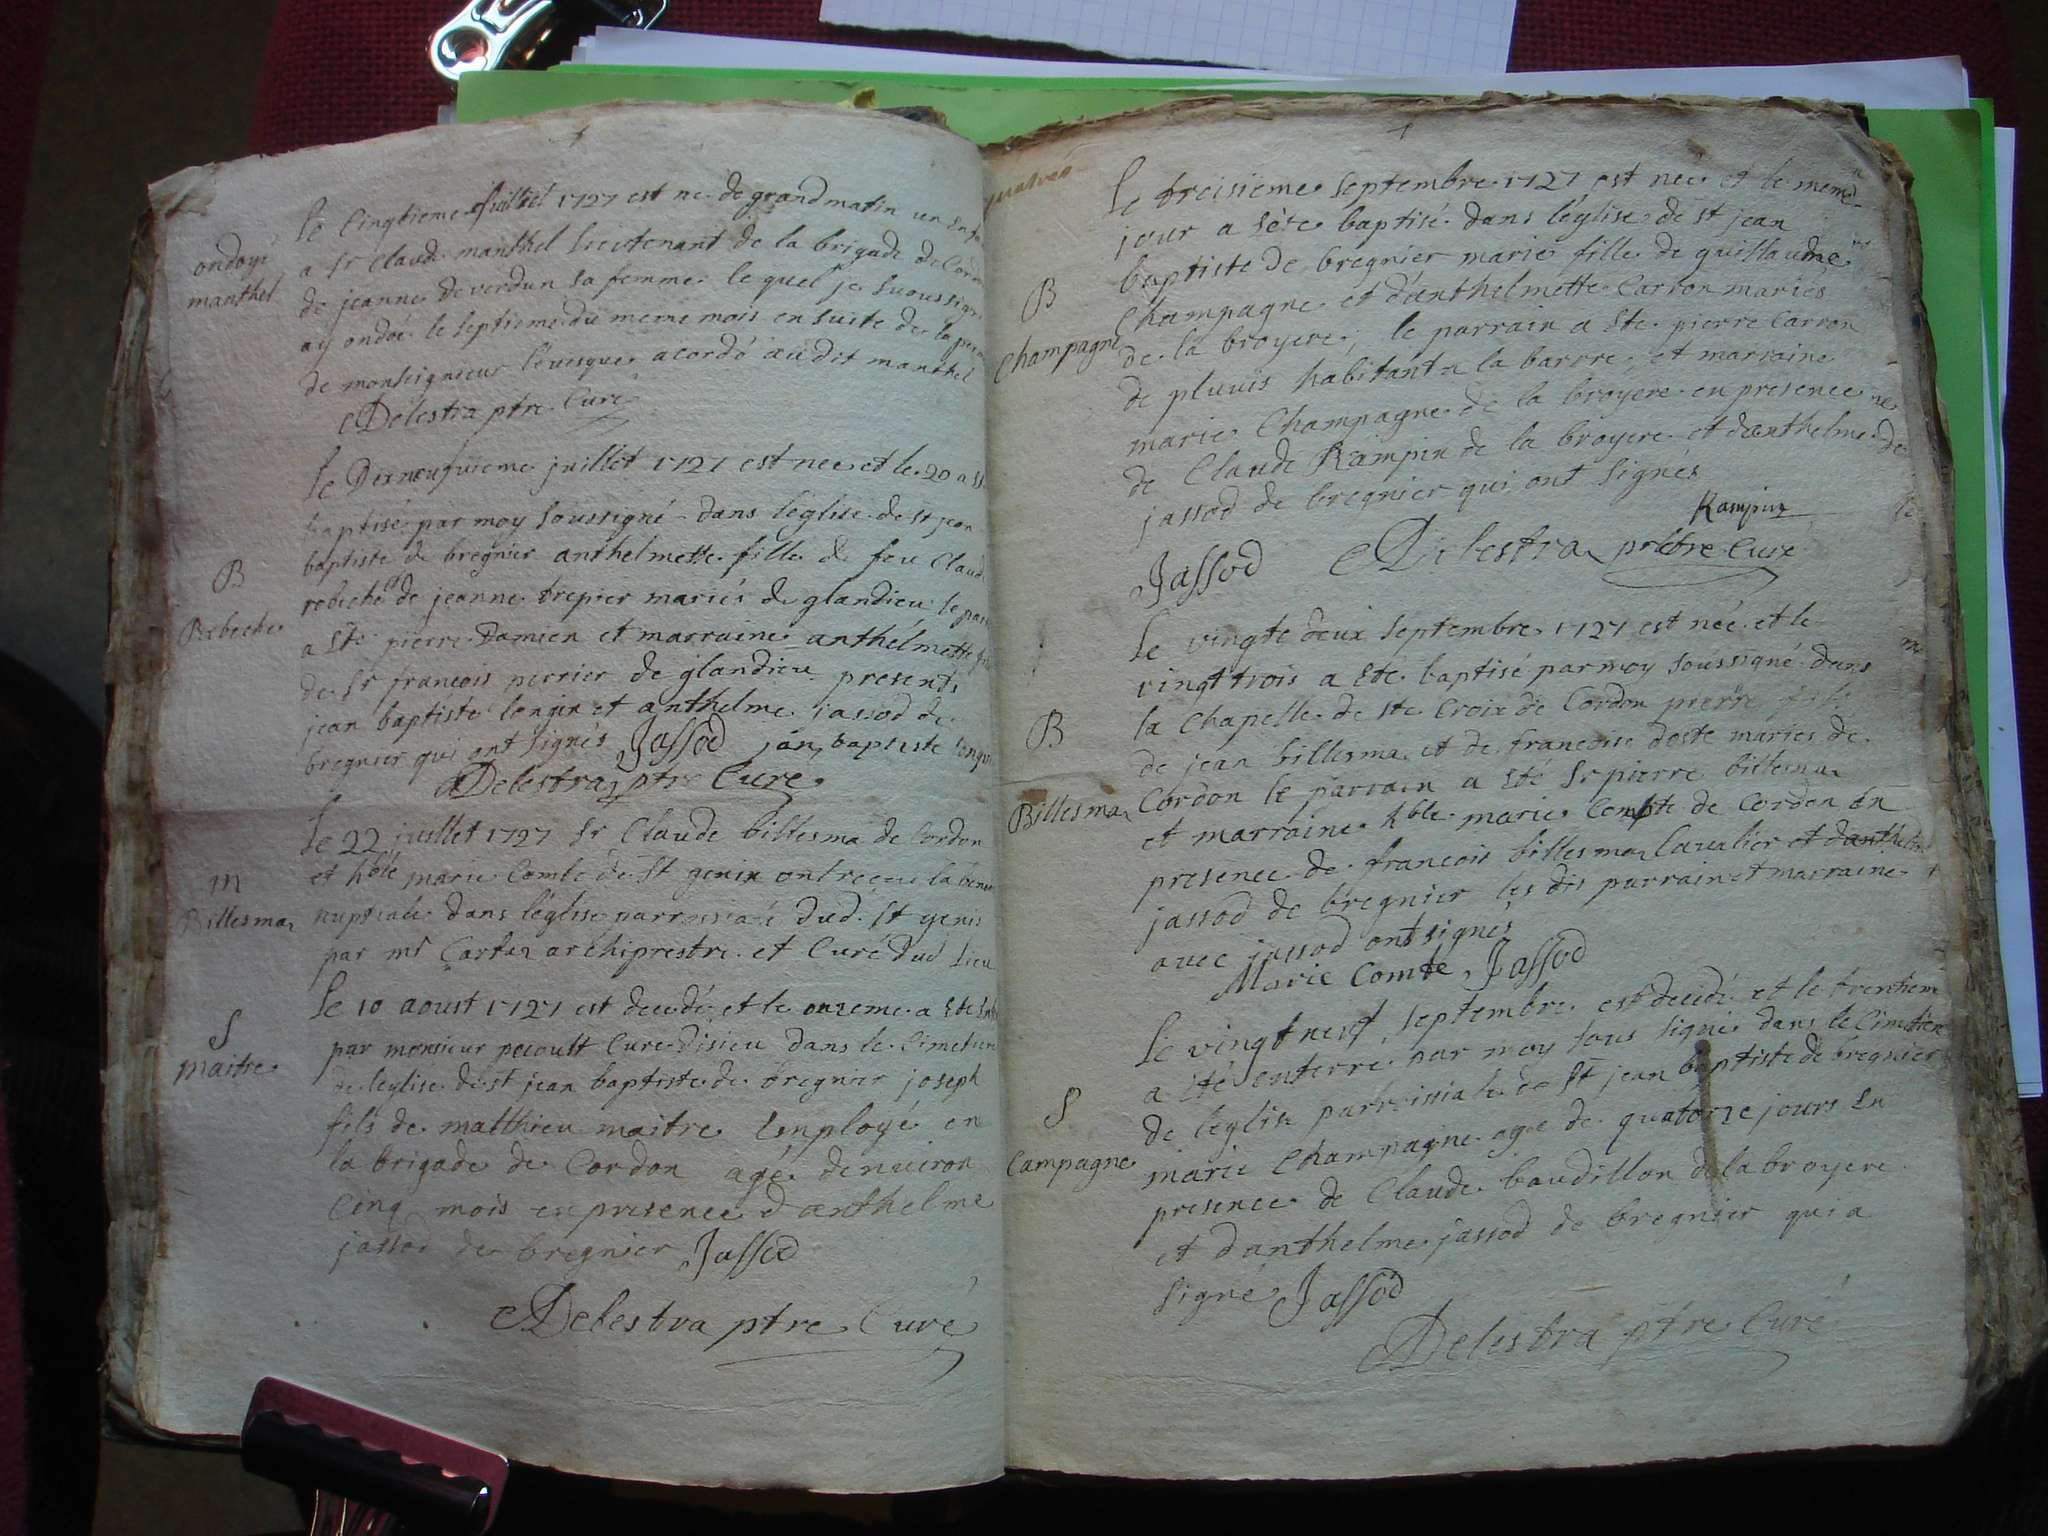 ondoyé
manthel
Le Cinqtieme juillet 1727 est ne de grand matin un
a Sr Claude manthel Lieutenant de la brigade de
de jeanne de verdun sa femme le quel je
ay ondoé le septieme du meme mois en suite de la
de monseignieur levesque acordé audit manthel
Delestra ptre Curé
B
Rebeche
Le Dixneufvieme juillet 1727 est nee et le 20 a
baptisé par moy soussigné dans léglise de st jean
baptiste de bregnier anthelmette fille de feu Claude
rebeche et de jeanne trepier mariés de glandieu le
a Ete pierre Damien et marraine anthelmette
de Sr francois perrier de glandieu presents
jean baptiste longin et anthelme jassod de
bregnier qui ont signés Jassod jan baptiste
Delestra ptre Curé
m
Billesma
Le 22 juillet 1727 Sr Claude billesma de Cordon
et hble marie Comte de St genix ont receu la
nuptiale dans léglise parrossiale dud. St genis
par mr archiprestre et Curé dud lieu
S
maitre
Le 10 aoust 1727 est decedé et le onzeme a Ete
par monsieur pecoult Cure disieu dans le Cimetiere
de leglise de st jean baptiste de bregnier joseph
fils de matthieu maitre Employé en
la brigade de Cordon agé denuiron
cinq mois en presence danthelme
jassod de bregnier Jassod
Delestra ptre Curé
B
Champagne
Le treisieme Septembre 1727 est neé et le meme
jour a Séte baptisé dans léglise de st jean
baptiste de bregnier marie fille de guillaume
Champagne et danthelmette Carron mariés
de la broyere, le parrain a Ete pierre Carron
de pluuis habitant a la barre et marraine
marie Champagne de la broyere en presence
de Claude Rampin de la broyere et danthelme
jassod de bregnier qui ont signés
Rampin
Jassod Delestra prêtre Curé
B
Billesma
Le vingte deux Septembre 1727 est neé et le
vingt trois a Eté baptisé par moy soussigné dans
la Chapelle de ste Croix de Cordon pierre fils
de jean billesma et de francoise doste maries de
Cordon le parrain a Eté Sr pierre billesma
et marraine hble marie Comte de Cordon En
presence de francois billesma Cavalier et danthelme
jassod de bregnier les dis parrain et marraine
avec jassod ont signes
Marie Comte Jassod
S
Campagne
Le vingt neuf Septembre est decidé et le trentiem
a été enterré par moy sous signé dans le Cimetiere
de leglise parroissiale de St jean baptiste de bregnier
marie Champagne age de quatorze jours En
presence de Claude baudillon de la broyere
et danthelme jassod de bregnier qui a
signé Jassod
Delestra ptre Curé